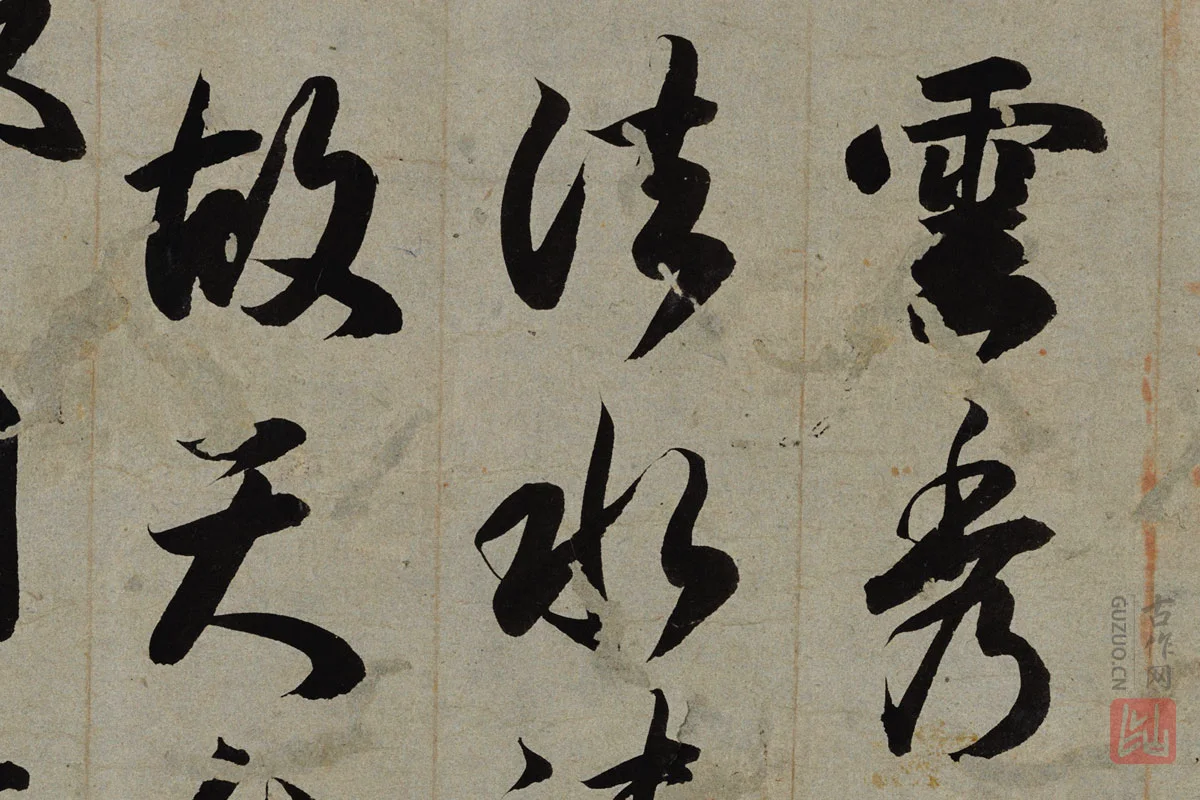 靈秀
清水清
故天
古作网
GUZUO.CN